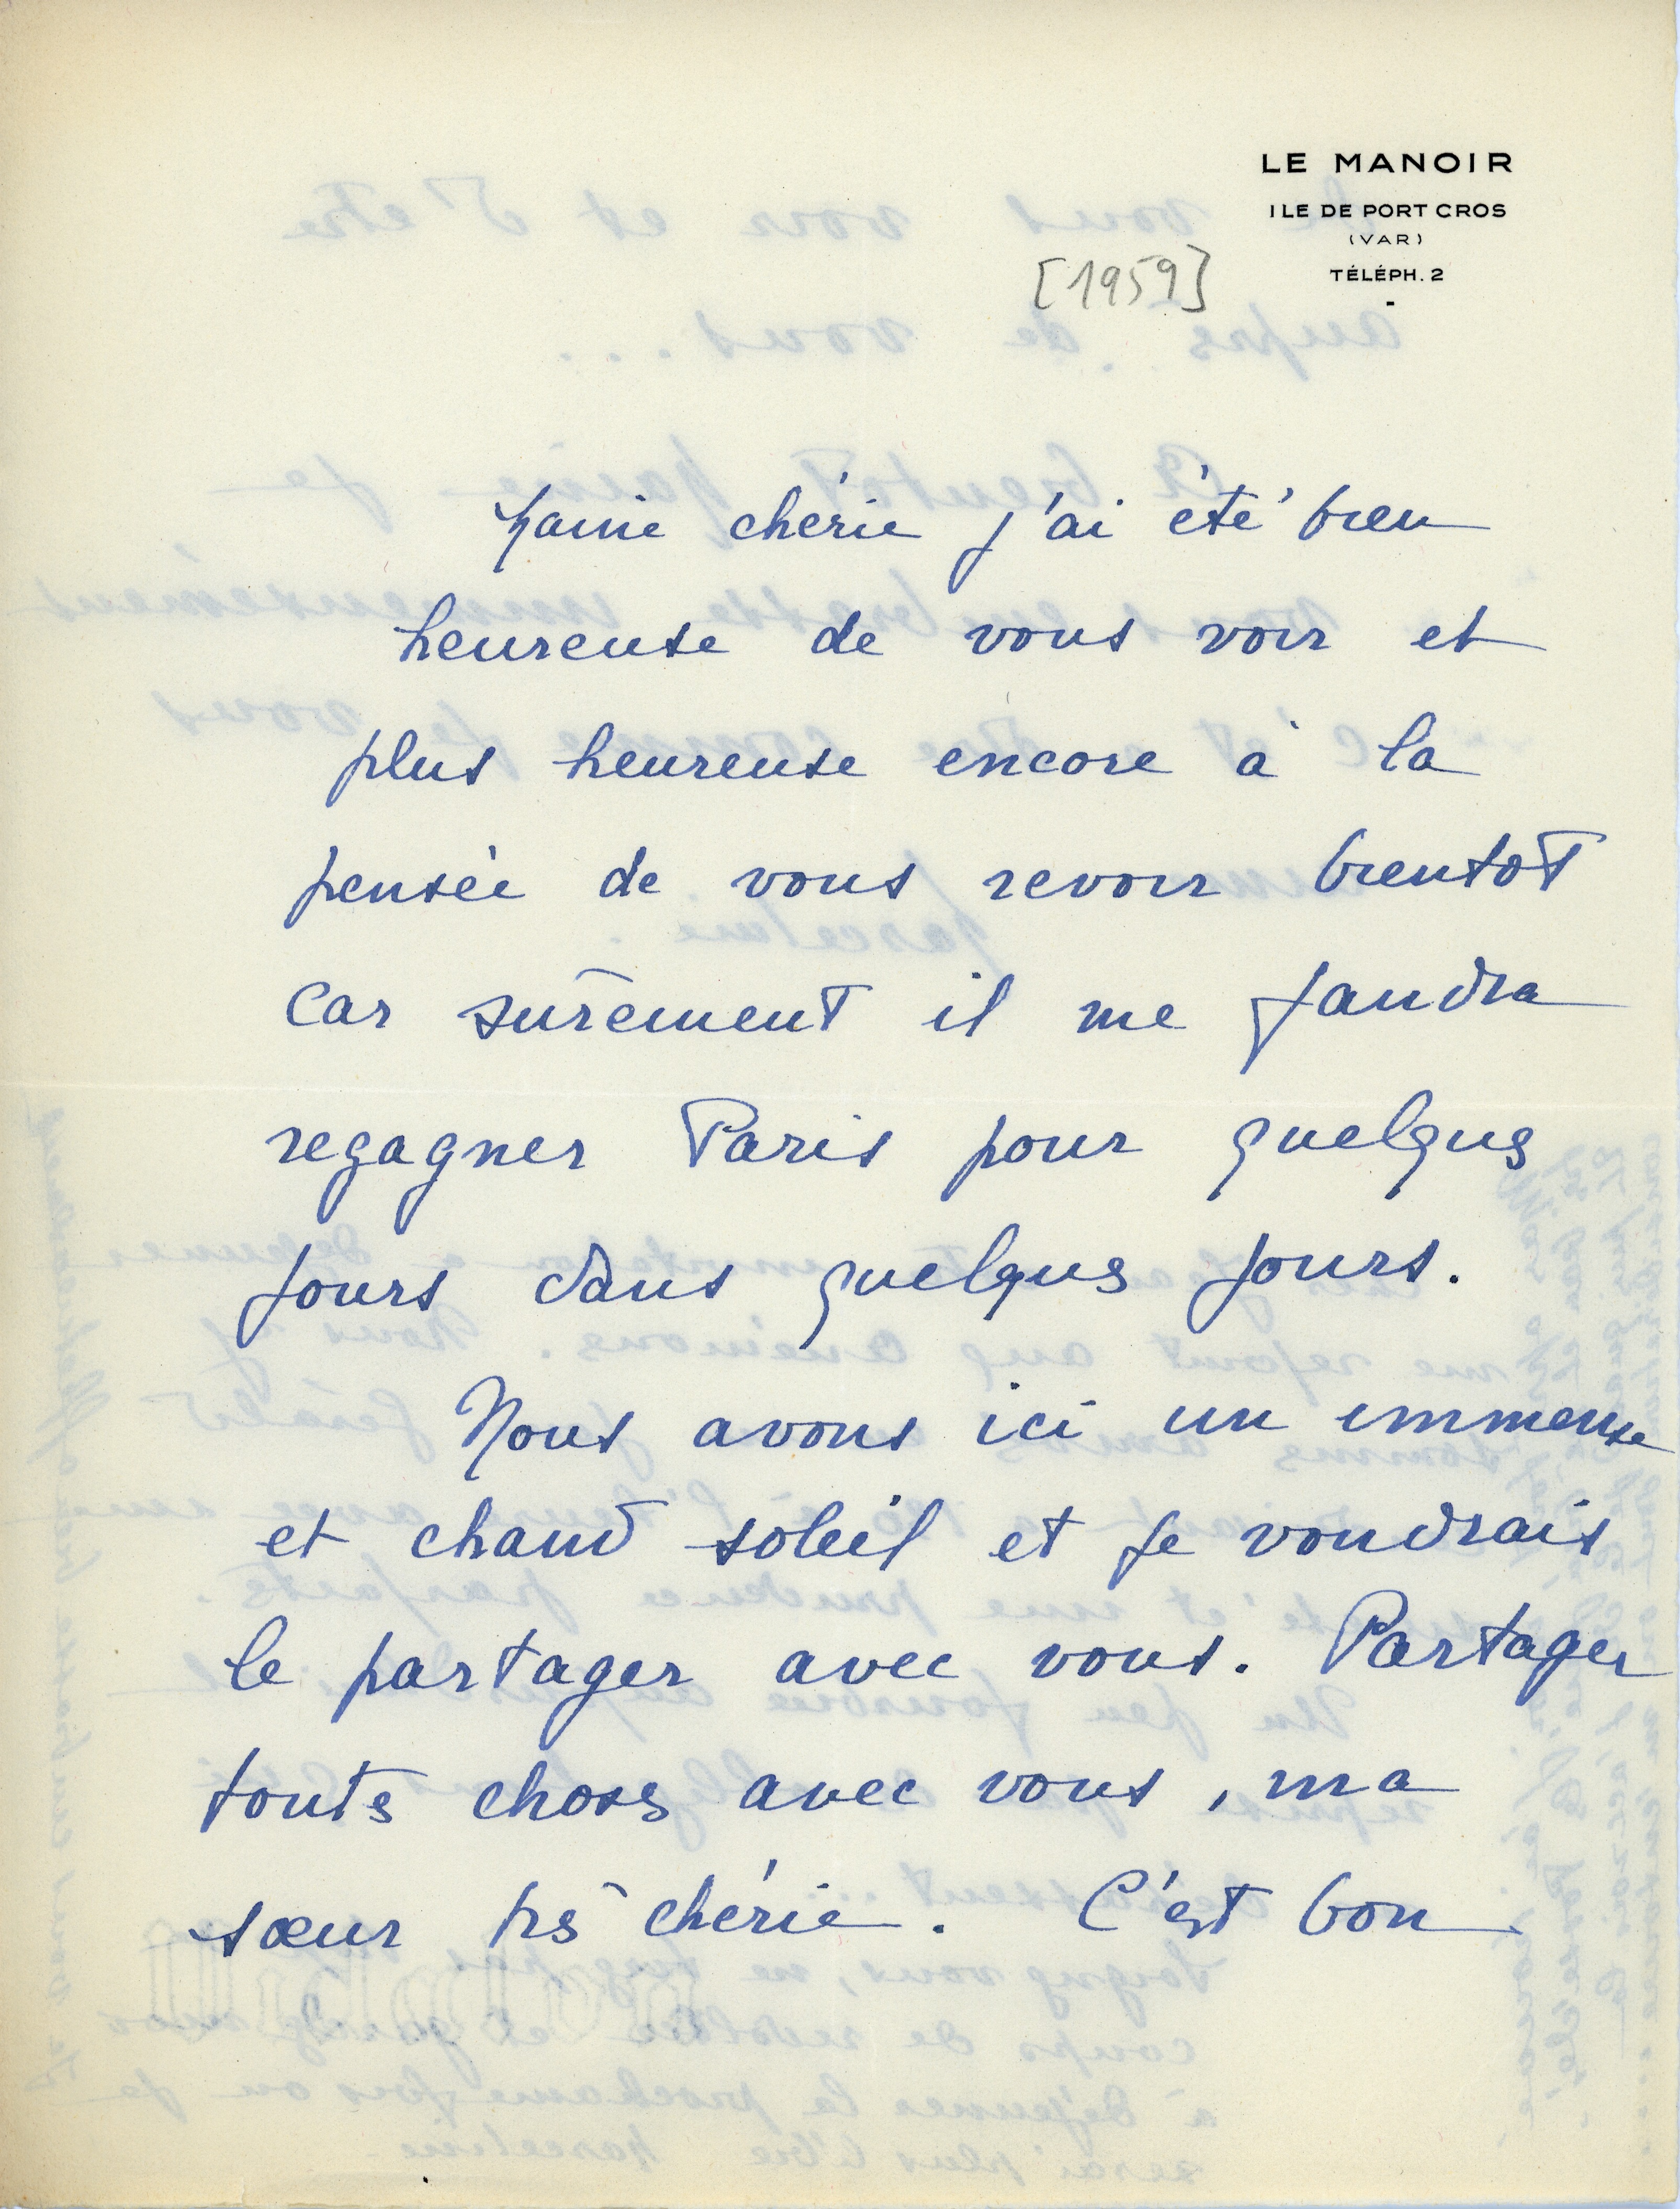 LE MANOIR
ILE DE PORT CROS
(VAR)
TÉLÉPH. 2
[1959]
chérie j'ai été bien
heureuse de vous voir et
plus heureuse encore à la
pensée de vous revoir bientot
car surement il me faudra
regagner Paris pour quelques
jours dans quelques jours.
Nous avons ici un immense
et chaud soleil et je voudrais
le partager avec vous. Partager
toutes choses avec vous, ma
sœur très chérie. C'est bon